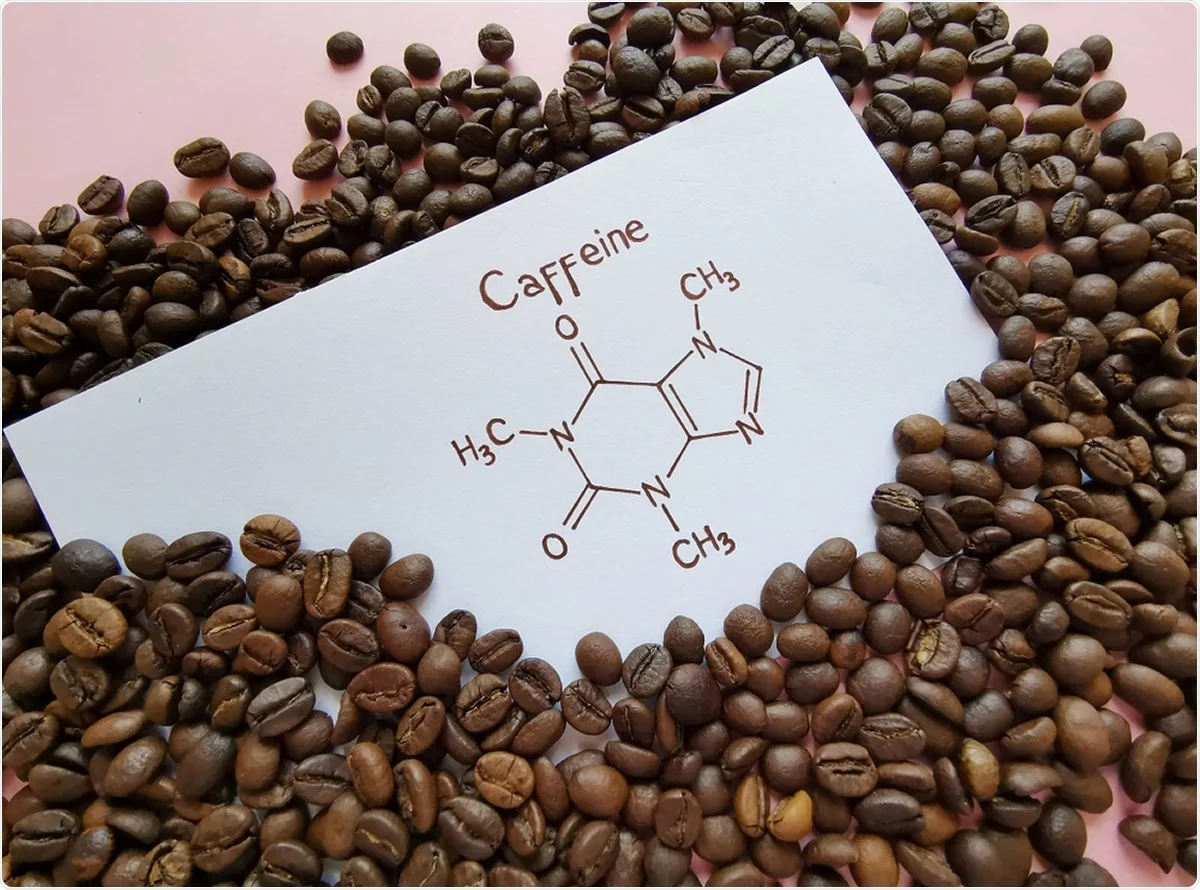 Caffeine
CH₃
O
N
H₃C
N
N
N
O
CH₃